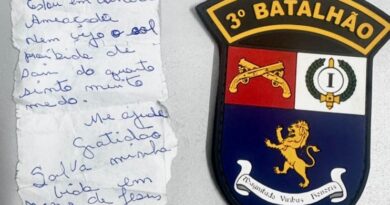 Estou em
Ameaçada
Nem vejo o sol
proibida até
sair do quarto
sinto muito
medo.
Me ajude
Gratidão
Salva minha
vida em
de Jesus
3º BATALHÃO
I